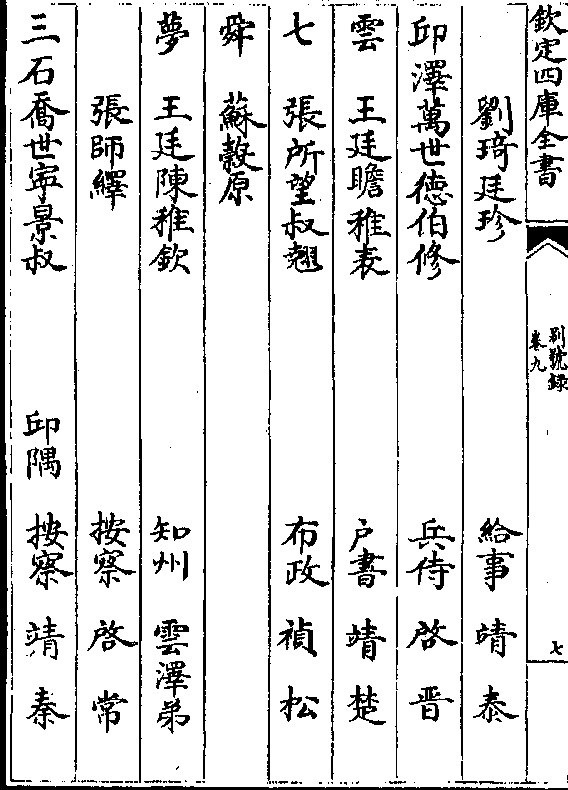 欽定四庫全書
别號録
卷九
七
劉琦廷珍 給事 靖 泰
邱澤萬世德伯修 兵侍 啓 晋
雲 王廷瞻稚表 户書 靖 楚
七 張所望叔翹 布政 禎 松
舜 蘇穀原
夢 王廷陳稚欽 知州 雲澤弟
張師繹 按察 啓 常
三石喬世寕景叔 邱隅 按察 靖 秦